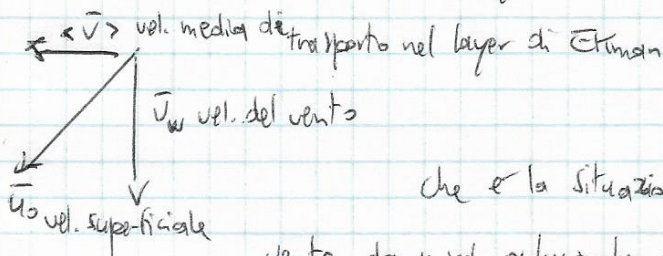 < v̄ > vel. media di trasporto nel layer di Ekman
v̄w vel. del vento
che è la situazio
ū₀ vel. superficiale